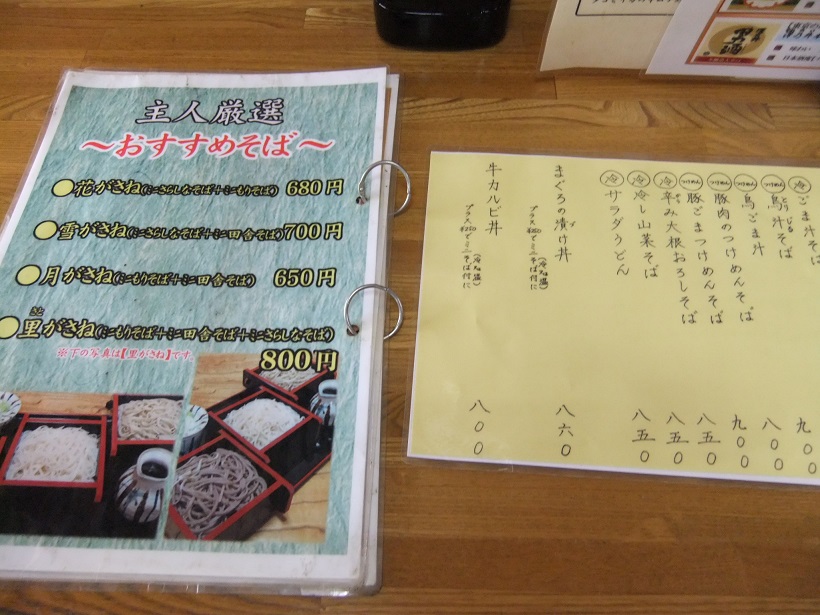 主人厳選
～おすすめそば～
●花がさね(ミニさらしなそば＋ミニもりそば) 680円
●雪がさね(ミニさらしなそば＋ミニ田舎そば) 700円
●月がさね(ミニもりそば＋ミニ田舎そば) 650円
さと
●里がさね(ミニもりそば＋ミニ田舎そば＋ミニさらしなそば)
800円
※下の写真は【里がさね】です。
冷 ごま汁そば 九〇〇
つけめん 鳥汁そば 八〇〇
とりじる
つけめん 鳥ごま汁 九〇〇
つけめん 豚肉のつけめんそば 八五〇
つけめん 豚ごまつけめんそば 八五〇
冷 辛み大根おろしそば 八五〇
冷 冷し山菜そば
冷 サラダうどん
まぐろの漬け丼 八六〇
づ
牛カルビ丼 八〇〇